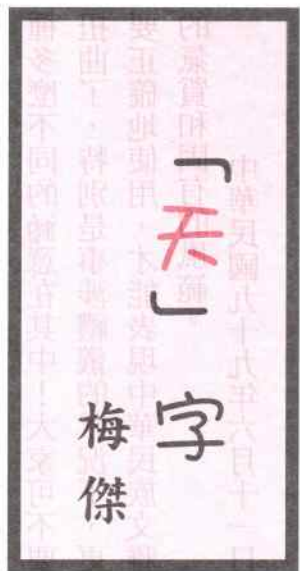 「天」字
梅傑